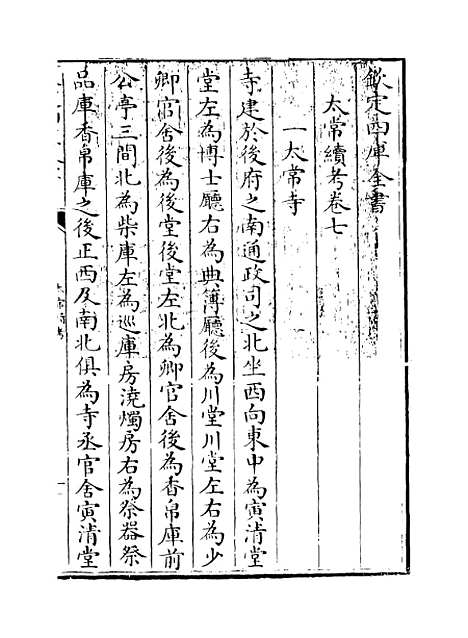 欽定四庫全書
太常續考卷七
一太常寺
寺建於後府之南通政司之北坐西向東中為寅清堂
堂左為博士廳右為典簿廳後為川堂川堂左右為少
卿官舍後為後堂後堂左北為卿官舍後為香帛庫前
公亭三間北為柴庫左為巡庫房澆燭房右為祭器祭
品庫香帛庫之後正西及南北俱為寺丞官舍寅清堂